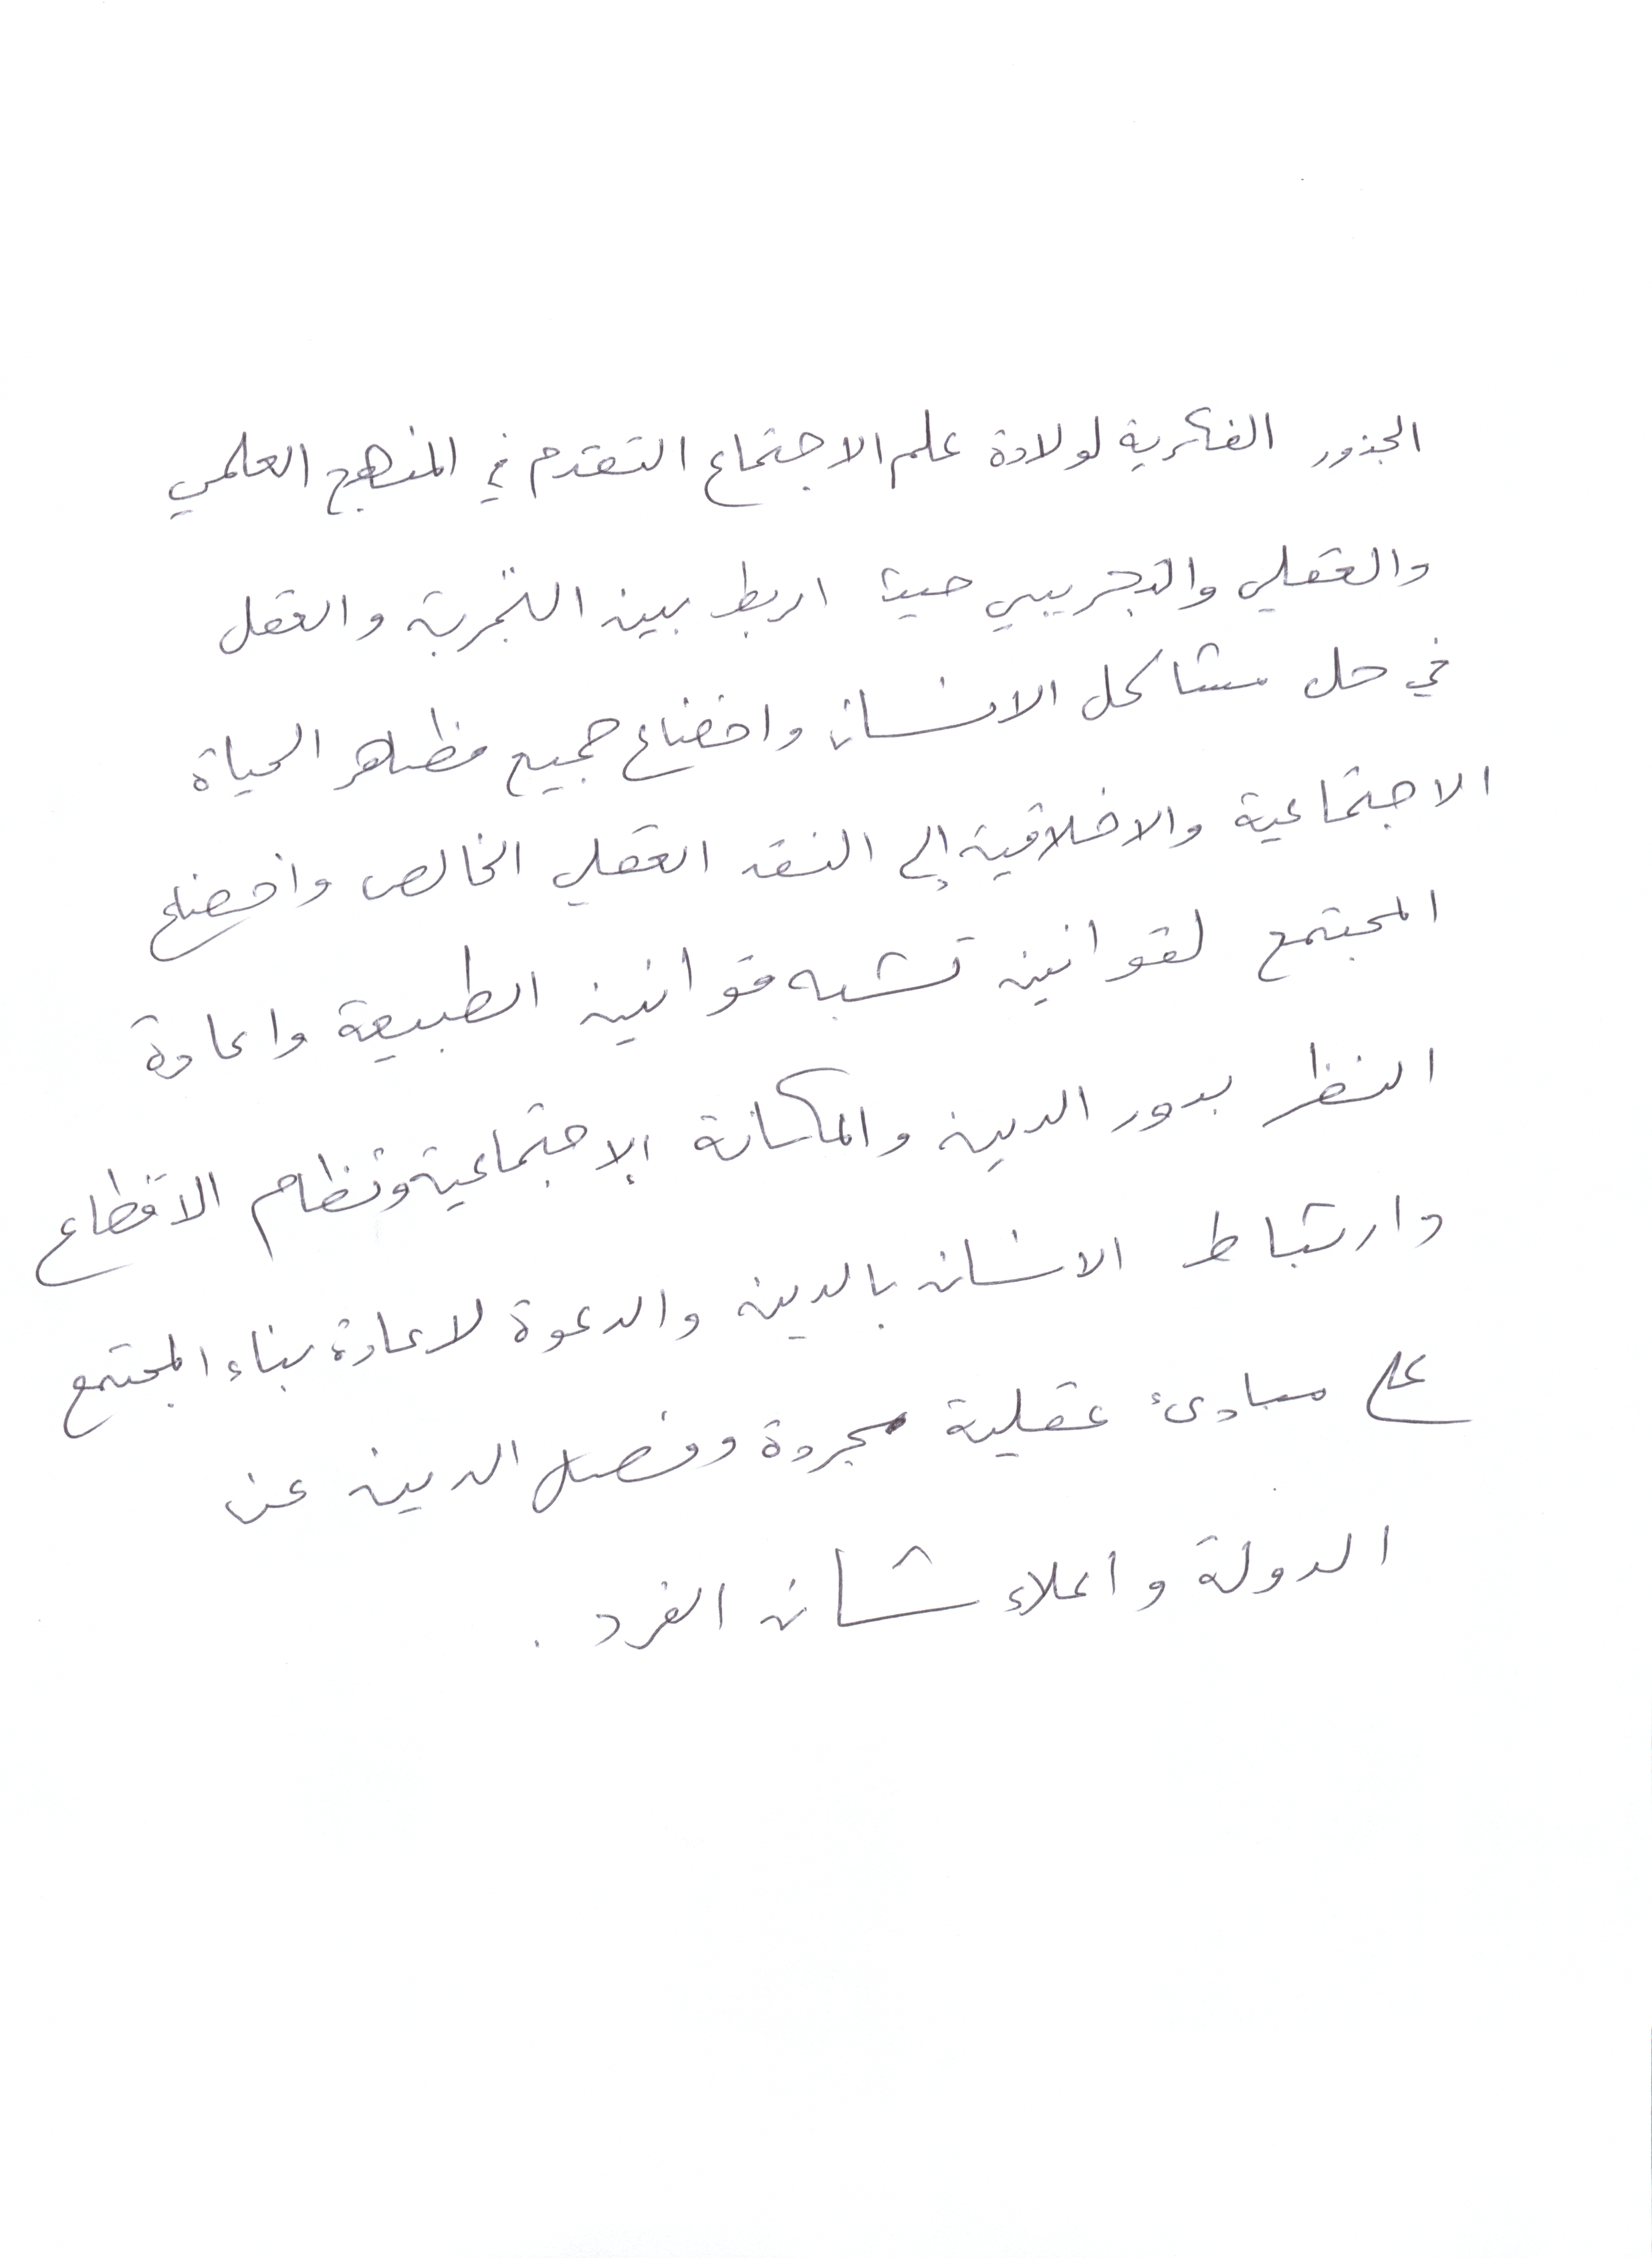 الجذور الفكرية لولادة علم الاجتماع التقدم في المنهج العلمي
والعقلي والتجريبي حيث اربط بين التجربة والعقل
في حل مشاكل الانسان واخضاع جميع مظاهر الحياة
الاجتماعية والاخلاقية إلى النقد العقلي الخالص واخضاع
المجتمع لقوانين تشبه قوانين الطبيعة واعادة
النظر بدور الدين والمكانة الإجتماعية ونظام الاقطاع
وارتباط الانسان بالدين والدعوة لاعادة بناء المجتمع
على مبادئ عقلية مجردة وفصل الدين عن
الدولة واعلاء شأن الفرد .